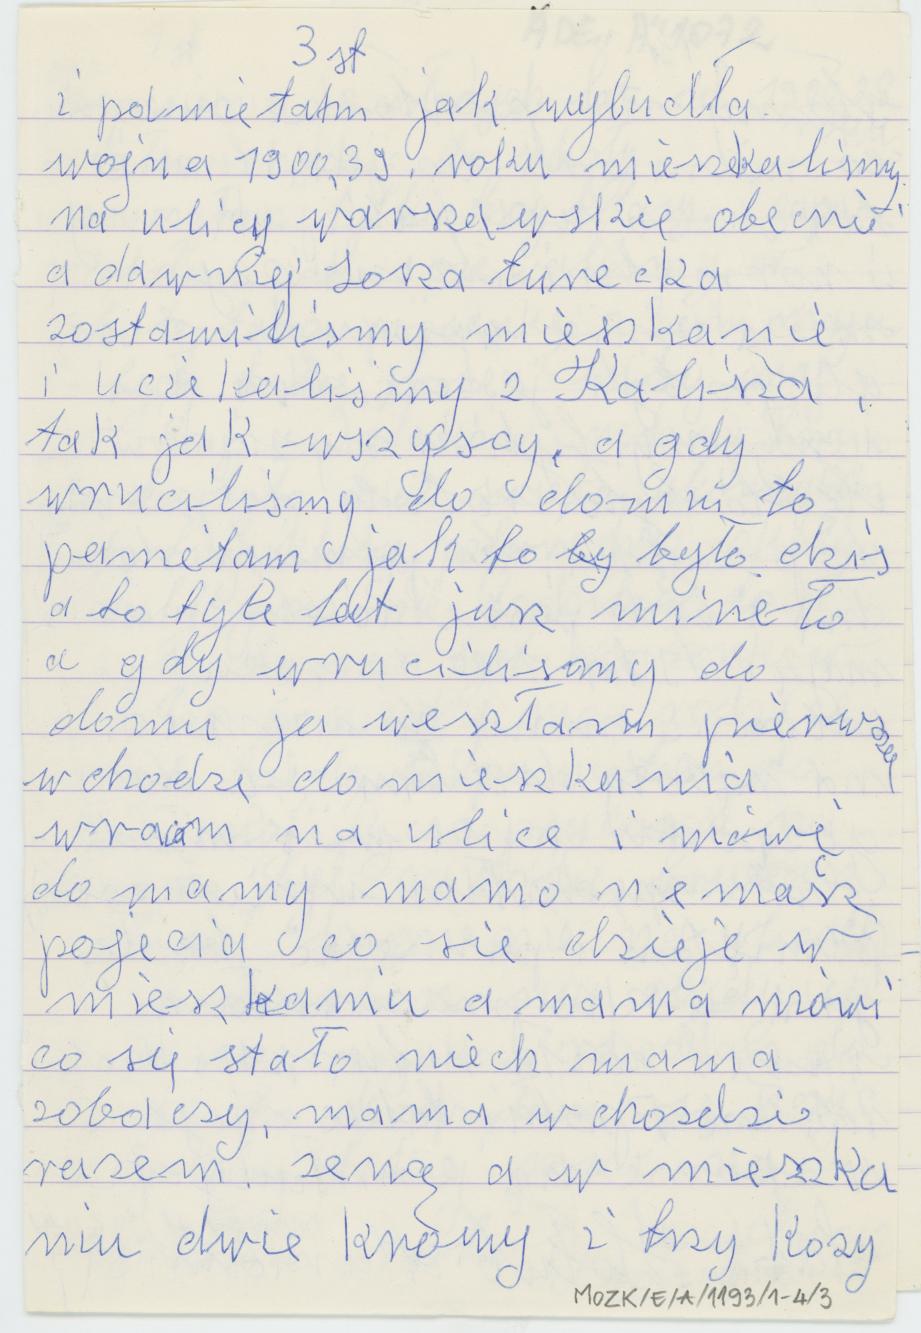 3 st
i pamiętam jak wybuchła
wojna 1900,39. roku mieszkalismy
na ulicy warszawskie obecnie
a dawniej Łoka turecka
zostawiliśmy mieszkanie
i uciekaliśmy z Kalisza,
tak jak wszyscy, a gdy
wruciliśmy do domu to
pamietam jak to by było dziś
a to tyle lat jusz mineło
a gdy wruciliśmy do
domu ja weszłam pierwszą
wchodzę do mieszkania
wracam na ulice i mówię
do mamy mamo niemasz
pojęcia co sie dzieje w
mieszkaniu a mama mówi
co się stało niech mama
zobaczy, mama wchosdzi
razem. zemą a w mieszka
niu dwie krowy i trzy kozy
MOZK/E/A/1193/1-4/3